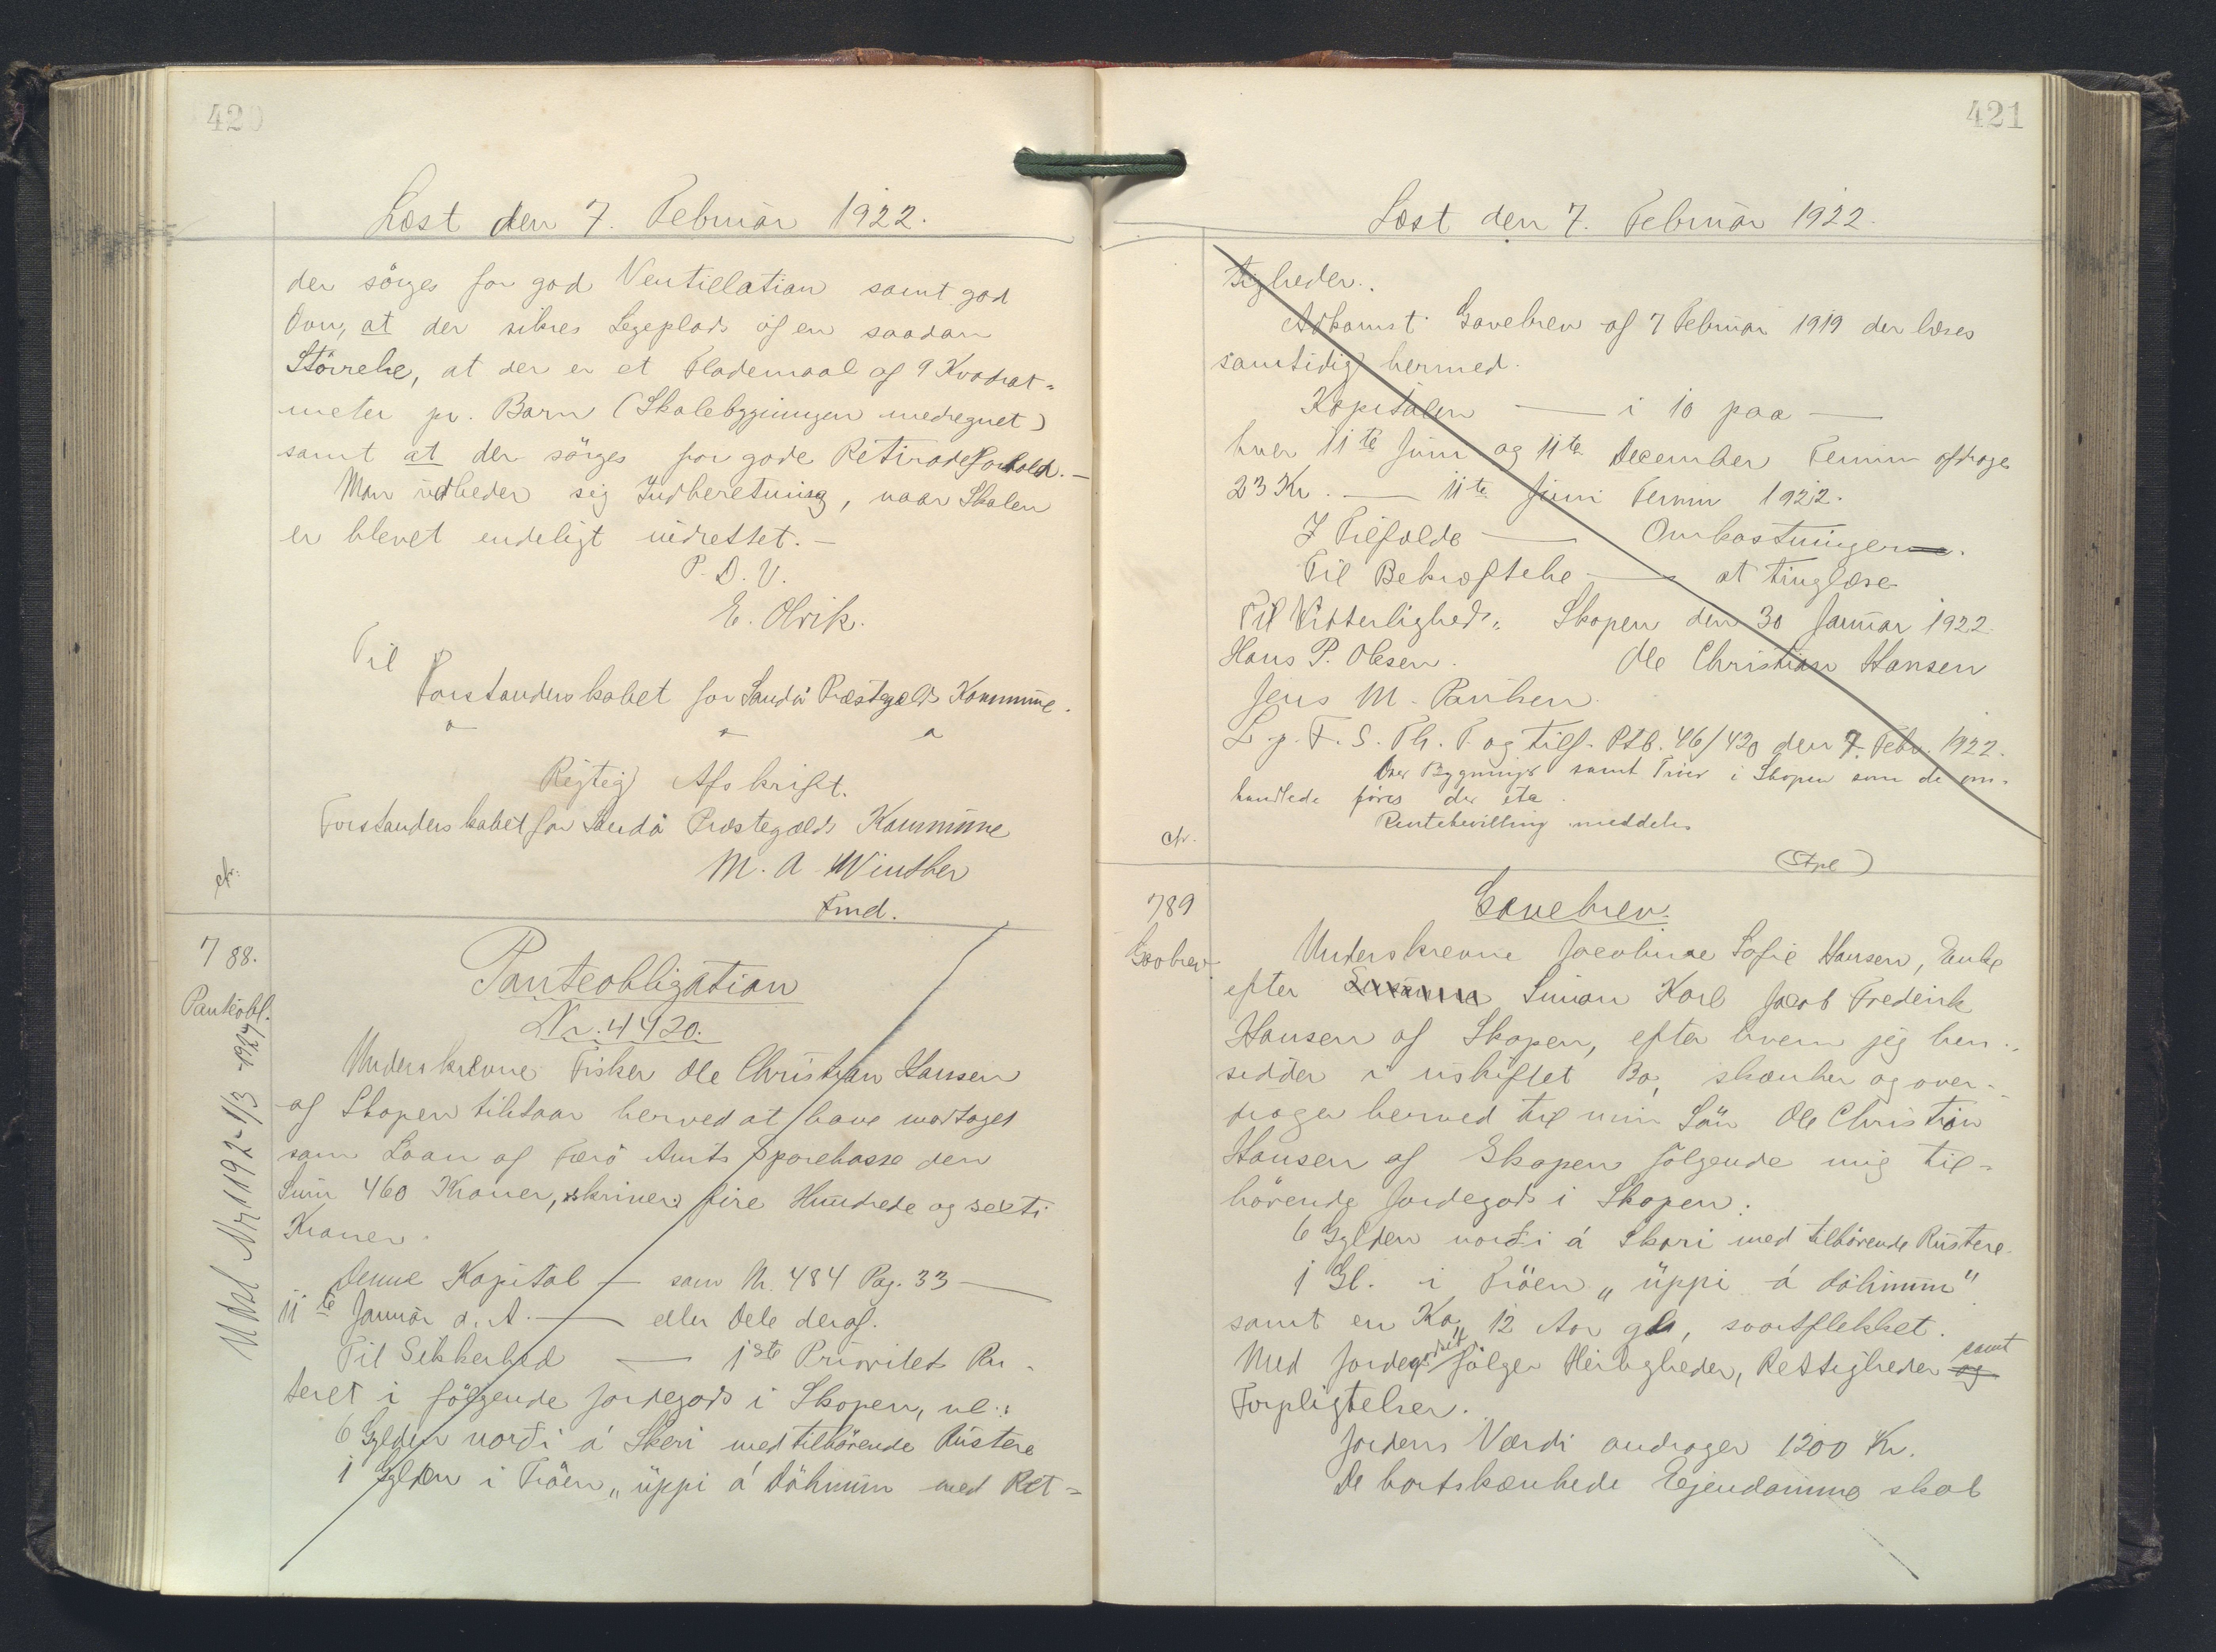 420
Læst den 7. Februar 1922.
der sörges for god Ventillation samt god
Ovn, at der sikres Legeplads af en saadan
Störrelse, at der er et Flademaal af 9 Kvadrat-
meter pr. Barn (Skolebygningen medregnet)
samt at der sörges for gode Retiradeforhold.-
Man udbeder sig Indberetning, naar Skolen
er blevet endeligt indrettet.-
P.D.V.
E. Olrik.
Til
Forstanderskabet for Sandö Præstegælds Kommune.
Rigtig Afskrift.
Forstanderskabet for Sandö Præstegælds Kommune
M. A. Winther
Fmd.
788.
Panteobl.
Udsl Nr 1192-1/3-1927
Panteobligation
Nr. 4420.
Underskrevne Fisker Ole Christian Hansen
af Skopen tilstaar herved at have modtaget
som Laan af Færö Amts Sparekasse den
Sum 460 Kroner, skriver fire Hundrede og sexti
Kroner.
Denne Kapital — som Nr. 484 Pag. 33 —
11te Januar d. A. — eller Dele deraf.
Til Sikkerhed — 1ste Prioritets Pan-
teret i fölgende Jordegods i Skopen, nl.:
6 Gylden norði á Skeri med tilhörende Rústere
1 Gylden i Tröen „üppi á Döhinum med Ret-
421
Læst den 7. Februar 1922.
tigheder.
Adkomst: Gavebrev af 7 Februar 1919 der læses
samtidig hermed.
Kapitalen — i 10 paa —
hver 11te Juni og 11te December Termin afdrages
23 Kr. — 11te Juni Termin 1922.
I Tilfælde — Omkostningerne.
Til Bekræftelse — at tinglæse
Til Vitterlighed: Skopen den 30 Januar 1922
Hans P. Olesen. Ole Christian Hansen
Jens M. Poulsen.
L. p. F. S. Th. T. og tilf. Ptb. 46/420 den 7. Febr. 1922.
Over Bygninger samt Truer i Skopen som de om-
handlede föres der ete.
Rentebevilling meddeles
(Stpl)
789
Gavebrev
Gavebrev.
Underskrevne Jacobine Sofie Hansen, Enke
efter Simon Karl Jacob Frederik
Hansen af Skopen, efter hvem jeg hen-
sidder i uskiftet Bo, skænker og over-
drager herved til min Sön Ole Christian
Hansen af Skopen fölgende mig til-
hörende Jordegods i Skopen:
6 Gylden norði á Skeri med tilhörende Rústere
1 Gl. i Tröen „üppi á Döhinum"
samt en Ko, 12 Aar gl., sortflekket.
Med Jordegodset fölger Herligheder, Rettigheder og samt
Forpligtelser.
Jordens Værdi andrager 1200 Kr.
De bortskænkede Ejendomme skal